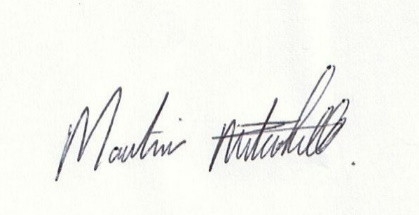 Martin Mitchell.